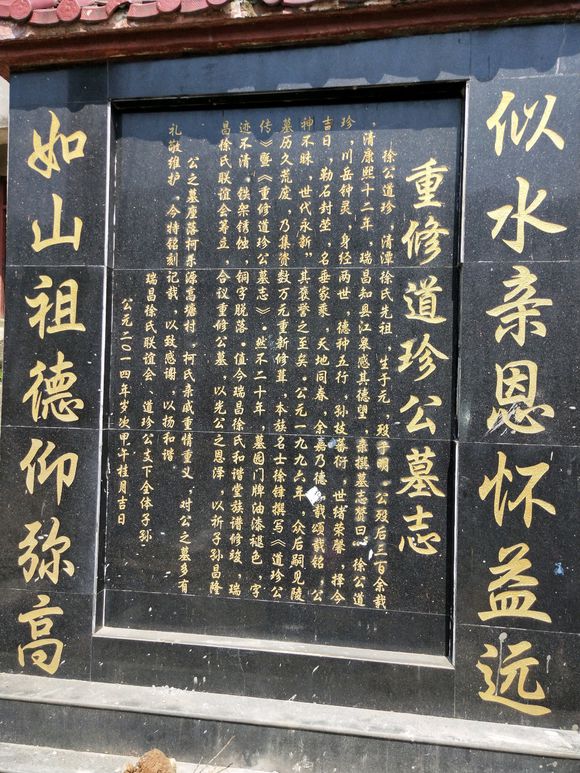 似水亲恩怀益远
重修道珍公墓志
徐公道珍，清潭徐氏先祖，生于元，殁于明。公殁后三百余载
，清康熙十二年，瑞昌知县江皋感其德望，亲撰墓志赞曰：徐公道
珍，川岳钟灵，身经两世，德种五行，孙枝蕃衍，世绪荣馨，择今
吉日，勒石封茔，名垂家乘，天地同春，余嘉乃德，载颂载铭，公
神不昧，世代永新"其褒誉之至矣。公元一九九六年，众后嗣见陵
墓历久荒废，乃集资数万元重新修葺，本族名士徐锋撰写《道珍公
传》暨《重修道珍公墓志》。然不二十年，墓园门牌油漆褪色，字
迹不清。铁架锈蚀，铜字脱落。值今瑞昌徐氏和谐堂族谱修竣，瑞
昌徐氏联谊会筹立，合议重修公墓，以光公之恩泽，以祈子孙昌隆
公之墓座落柯乐源高塘村，柯氏亲戚重情重义，对公之墓多有
礼敬维护。今特铭刻记哉，以致感谢，以扬和谐。
瑞昌徐氏联谊会 道珍公支下全体子孙
公元二〇一四年岁次甲午桂月吉日
如山祖德仰弥高